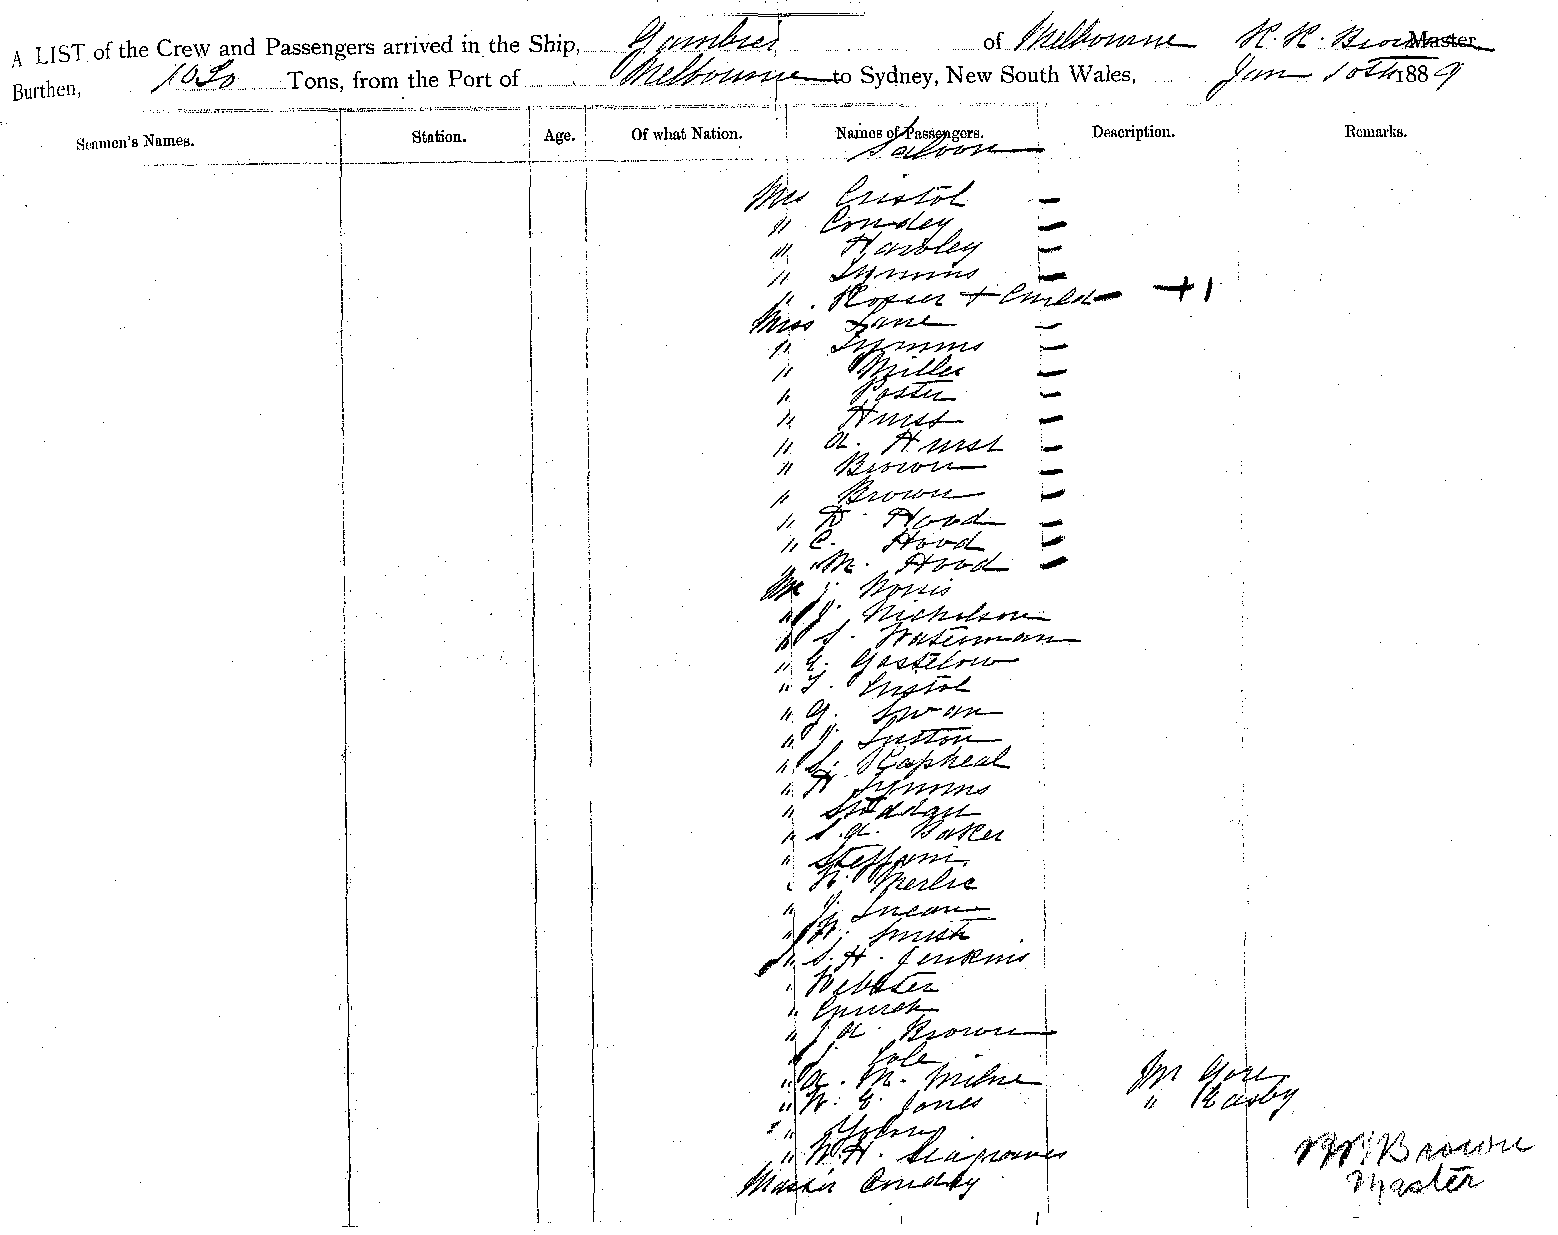 A LIST of the Crew and Passengers arrived in the Ship, Gambier of Melbourne Brown Master
Burthen, Tons, from the Port of Melbourne to Sydney, New South Wales, Jan 10th 1889
Seamen's Names. Station. Age. Of what Nation. Names of Passengers. Description. Remarks.
Saloon
Mrs Cristol
" Condey
" Hawley
" Tymms
" Rosser + Child +1
Miss Lane
" Tymms
" Miller
" Foster
" Hurst
" A. Hurst
" Brown
" Brown
" Hood
" C. Hood
" M. Hood
Mr J. Norris
" J. Nicholson
" S. Waterman
" G. Gostelow
" T. Cristol
" G. Swan
" J. Luston
" S. Rapheal
" H Tymms
" Stoddart
" S. A. Baker
" Steffani
" Merlie
" J. Lucan
" W. Smith
" S. H. Jenkins
" Webster
" Church
" J A. Brown
" Cole
" A. M. Milne Mr Gore
" W. E. Jones " Rasby
" Young
" W. H. Seagraves
Brown
Master
Master Condey